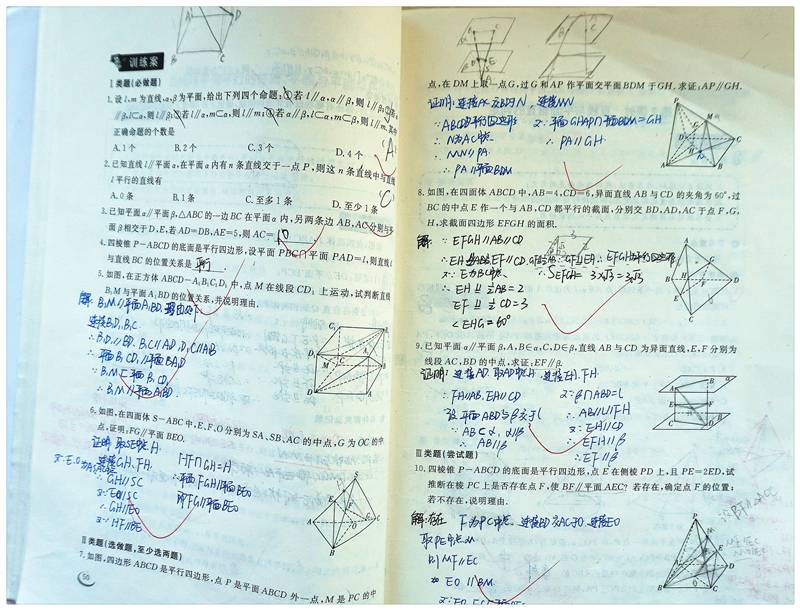 训练案
Ⅰ类题(必做题)
1.设l、m为直线,α、β为平面,给出下列四个命题:①若l∥α,α∥β,则l∥β;②若
∥β,l⊂α,则l∥β;③若l∥α,m⊂α,则l∥m;④若α∥β,l⊂α,m⊂β,则l∥m.其中
正确命题的个数是
A.1个 B.2个 C.3个 D.4个
2.已知直线l∥平面α,在平面α内有n条直线交于一点P,则这n条直线中与直线
l平行的直线有
A.0条 B.1条 C.至多1条 D.至少1条
3.已知平面α∥平面β,△ABC的一边BC在平面α内,另两条边AB,AC分别与平
面β相交于D,E,若AD=DB,AE=5,则AC=10
4.四棱锥P-ABCD的底面是平行四边形,设平面PBC∩平面PAD=l,则直线l
与直线BC的位置关系是平行.
5.如图,在正方体ABCD-A₁B₁C₁D₁中,点M在线段CD₁上运动,试判断直线
B₁M与平面A₁BD的位置关系,并说明理由.
解: B₁M∥平面A₁BD
连接BD₁B₁C
6.如图,在四面体S-ABC中,E、F、O分别为SA、SB、AC的中点,G为OC的中
点,证明:FG∥平面BEO.
连接GH、FH. HF∩GH=H
∴GH∥SC ∴平面FGH∥平面BEO
又∵EO∥SC 即FG∥平面BEO
∴GH∥EO
又∵HF∥BE
Ⅱ类题(选做题,至少选两题)
7.如图,四边形ABCD是平行四边形,点P是平面ABCD外一点,M是PC的中
56
点,在DM上取一点G,过G和AP作平面交平面BDM于GH.求证:AP∥GH.
证明:连接AC交BD于N,连接MN
∵ABCD为平行四边形 又∵平面GHAP∩平面BDM=GH
∴N为AC中点 ∴PA∥GH
∴MN∥PA
∴PA∥平面BDM
8.如图,在四面体ABCD中,AB=4,CD=6,异面直线AB与CD的夹角为60°,过
BC的中点E作一个与AB、CD都平行的截面,分别交BD,AD,AC于点F,G,
H,求截面四边形EFGH的面积.
解: ∵EFGH∥AB∥CD
又∵E为BC中点 ∴SEFGH=3×√3=3√3
∴EH∥½AB=2
EF∥½CD=3
<EHG=60°
9.已知平面α∥平面β,A、B∈α,C、D∈β,直线AB与CD为异面直线,E、F分别为
线段AC,BD的中点,求证:EF∥β.
证明:连接AD.取AD中点H.连接EH、FH.
∴FH∥AB,EH∥CD 又∵β∩ABD=l
设平面ABD与β交于l ∴AB∥l∥FH
∵AB⊂α,α∥β 又∵EH∥CD
∴AB∥β ∴EFH∥β
∴EF∥β
Ⅲ类题(尝试题)
10.四棱锥P-ABCD的底面是平行四边形,点E在侧棱PD上,且PE=2ED,试
推断在棱PC上是否存在点F,使BF∥平面AEC?若存在,确定点F的位置;
若不存在,说明理由.
解:存在 F为PC中点.连接BD交AC于O.连接EO
取PE中点M
则MF∥EC
EO∥BM